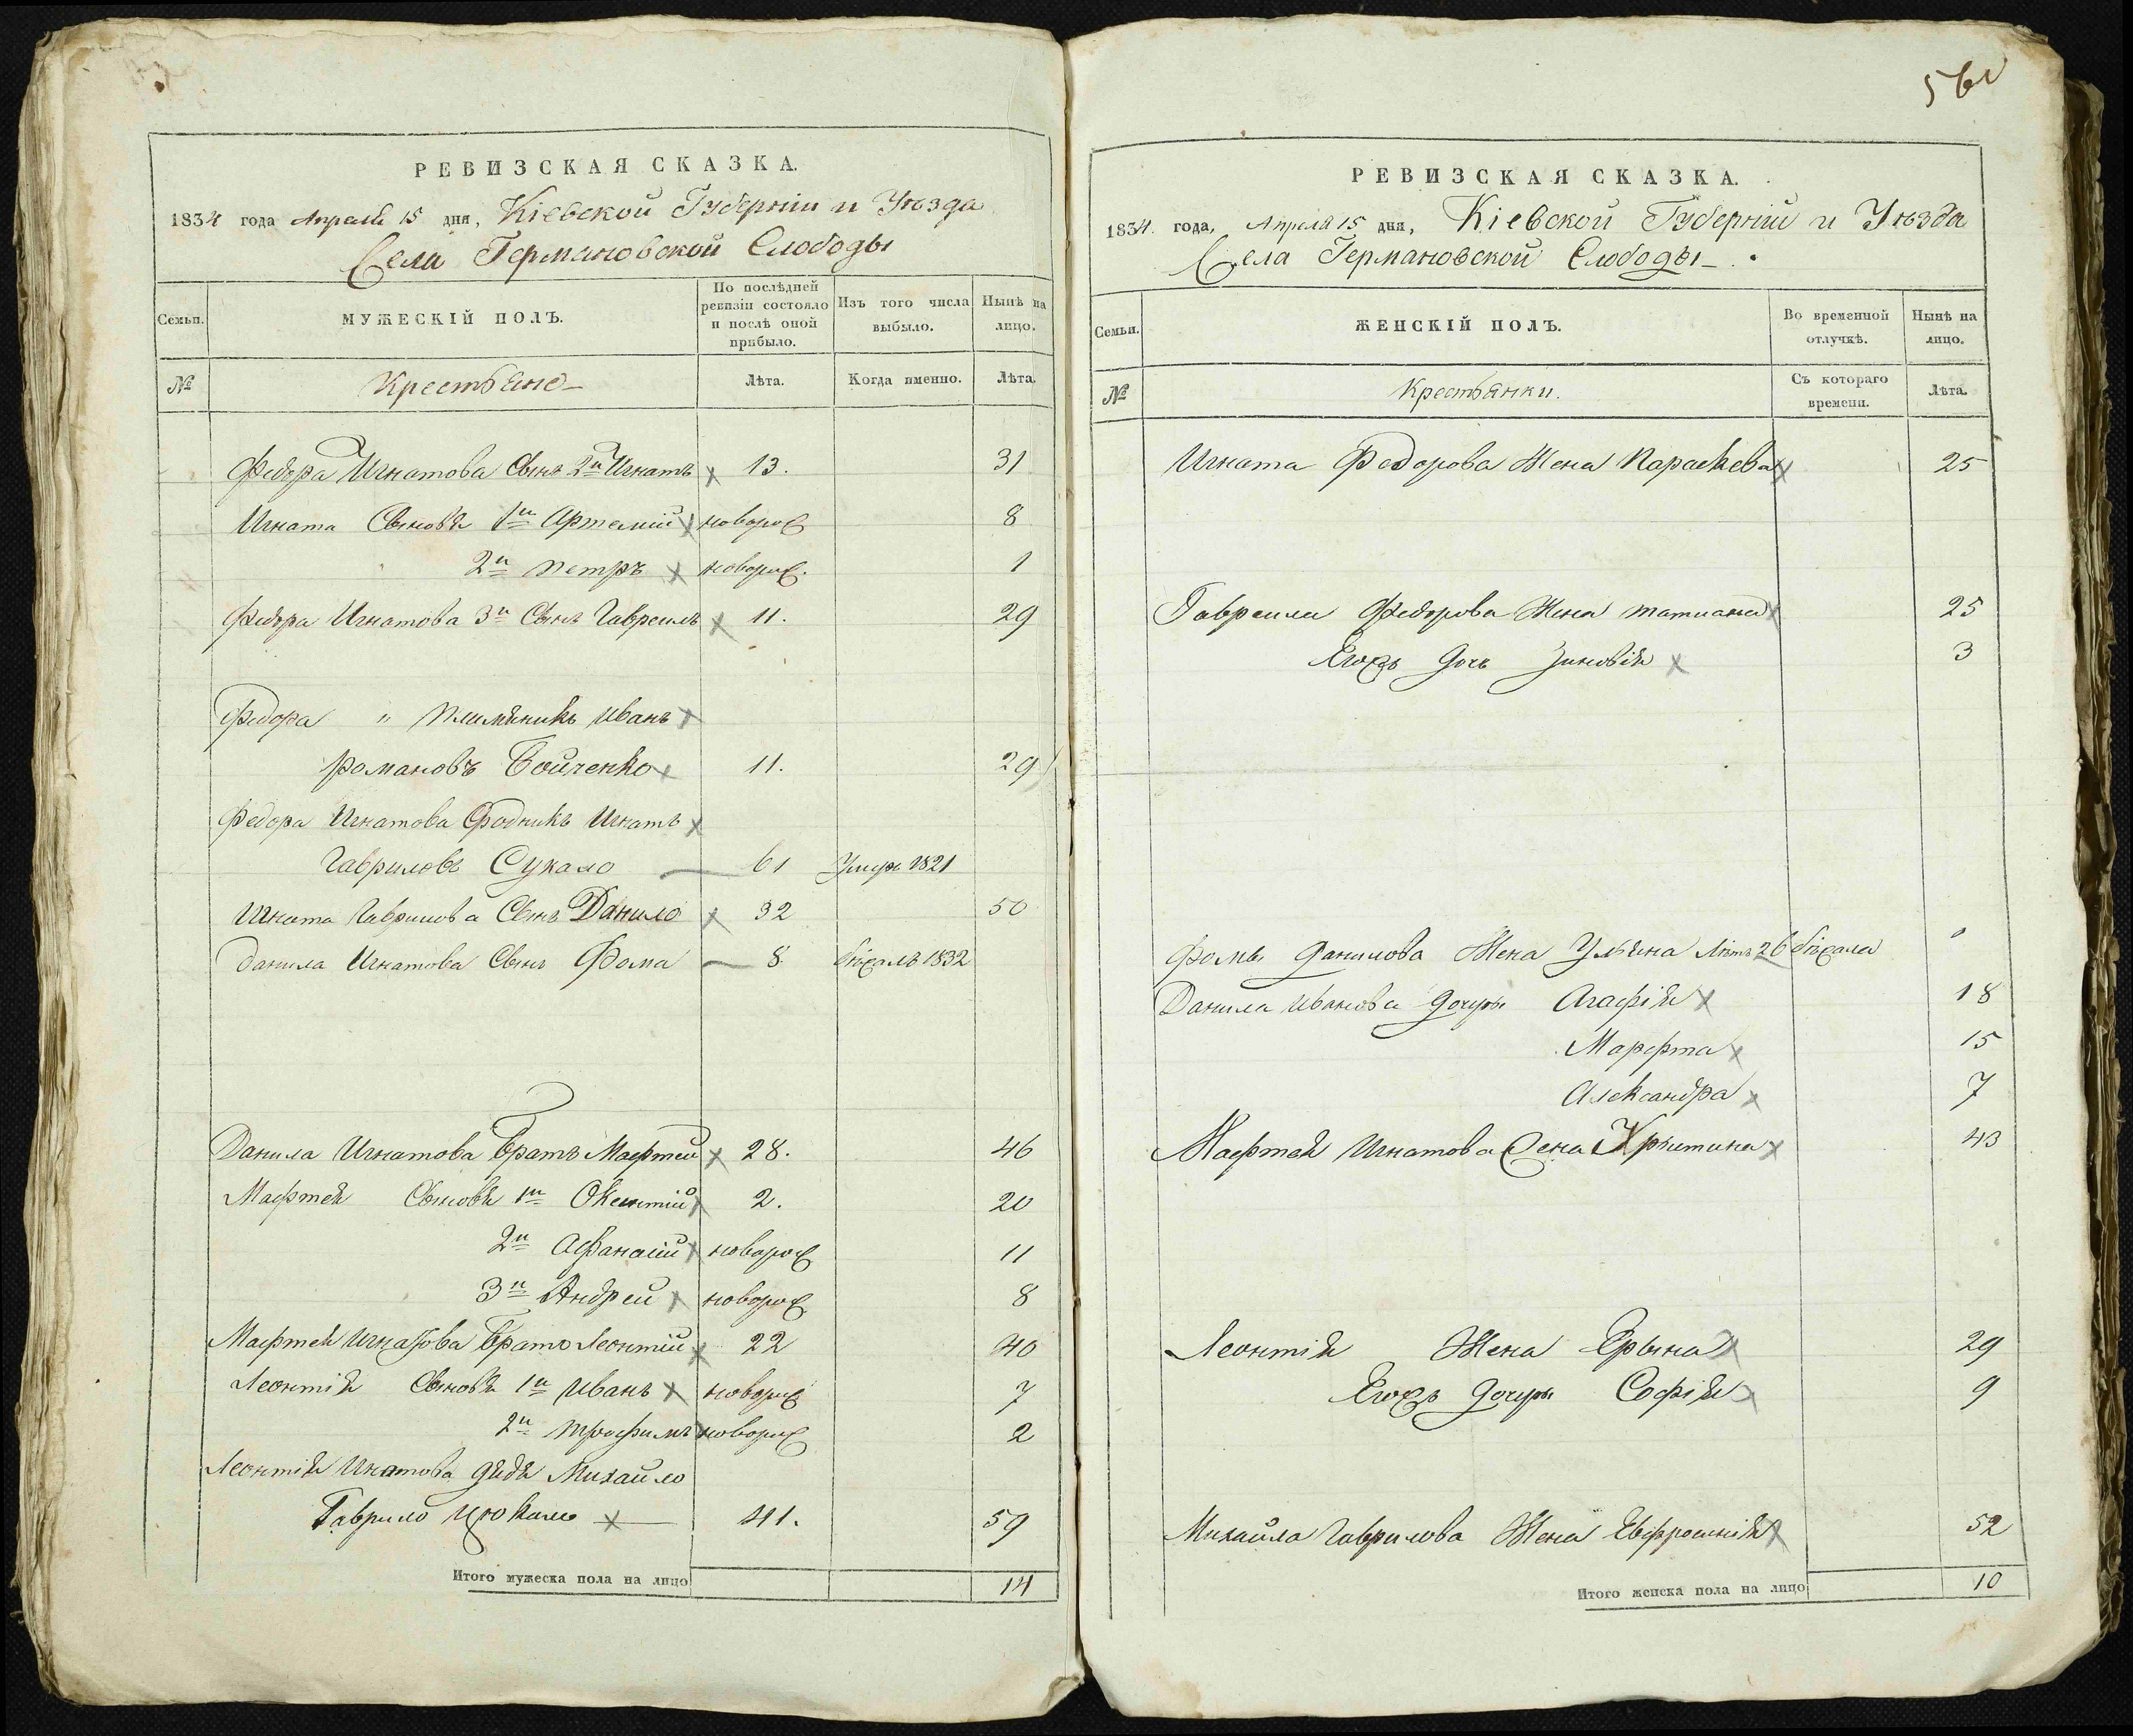 РЕВИЗСКАЯ СКАЗКА.
1834 года Апреля 15 дня, Кіевской Губерніи и Уѣзда
Села Германовской Слободы
Семьи.
МУЖЕСКІЙ ПОЛЪ.
По послѣдней ревизіи состояло и послѣ оной прибыло.
Изъ того числа выбыло.
Нынѣ на лицо.
№ Крестьяне Лѣта. Когда именно. Лѣта.
Федора Игнатова Сынъ 2й Игнатъ 13. 31
Игната Сыновья 1й Артемій новорож 8
2й Петръ новорож. 1
Федора Игнатова 3й Сынъ Гавреилъ 11. 29
Федора " племяникъ Иванъ
Романовъ Бойченко 11. 29
Федора Игнатова Сродникъ Игнатъ
Гавриловъ Сукало 61 Умеръ 1821
Игната Гаврилова Сынъ Данило 32 50
Данила Игнатова Сынъ Фома 8 бѣжалъ 1832
Данила Игнатова Братъ Мафтей 28. 46
Мафтея Сыновья 1й Окентій 2. 20
2й Афанасій новорож 11
3й Андрей новорож 8
Мафтея Игнатова Братъ Леонтій 22 40
Леонтія Сыновья 1й Иванъ новорож 7
2й Трофимъ новорож 2
Леонтія Игнатова дядя Михайло
Гаврило 41. 59
Итого мужеска пола на лицо 14
РЕВИЗСКАЯ СКАЗКА.
1834. года, Апреля 15 дня, Кіевской Губерніи и Уѣзда
Села Германовской Слободы
Семьи.
ЖЕНСКІЙ ПОЛЪ.
Во временной отлучкѣ.
Нынѣ на лицо.
№ Крестьянки. Съ котораго времени. Лѣта.
Игната Федорова Жена Параскева 25
Гавреила Федорова Жена Татиана 25
Егожъ дочь Зиновія 3
Фомы Данилова Жена Ульяна Лѣтъ 26 бѣжала
Данила Иванова дочери Агафія 18
Марфта 15
Александра 7
Мафтея Игнатова Жена Христина 43
Леонтія Жена Ерына 29
Егожъ дочери Софія 9
Михайла Гаврилова Жена Евфросинія 52
Итого женска пола на лицо 10